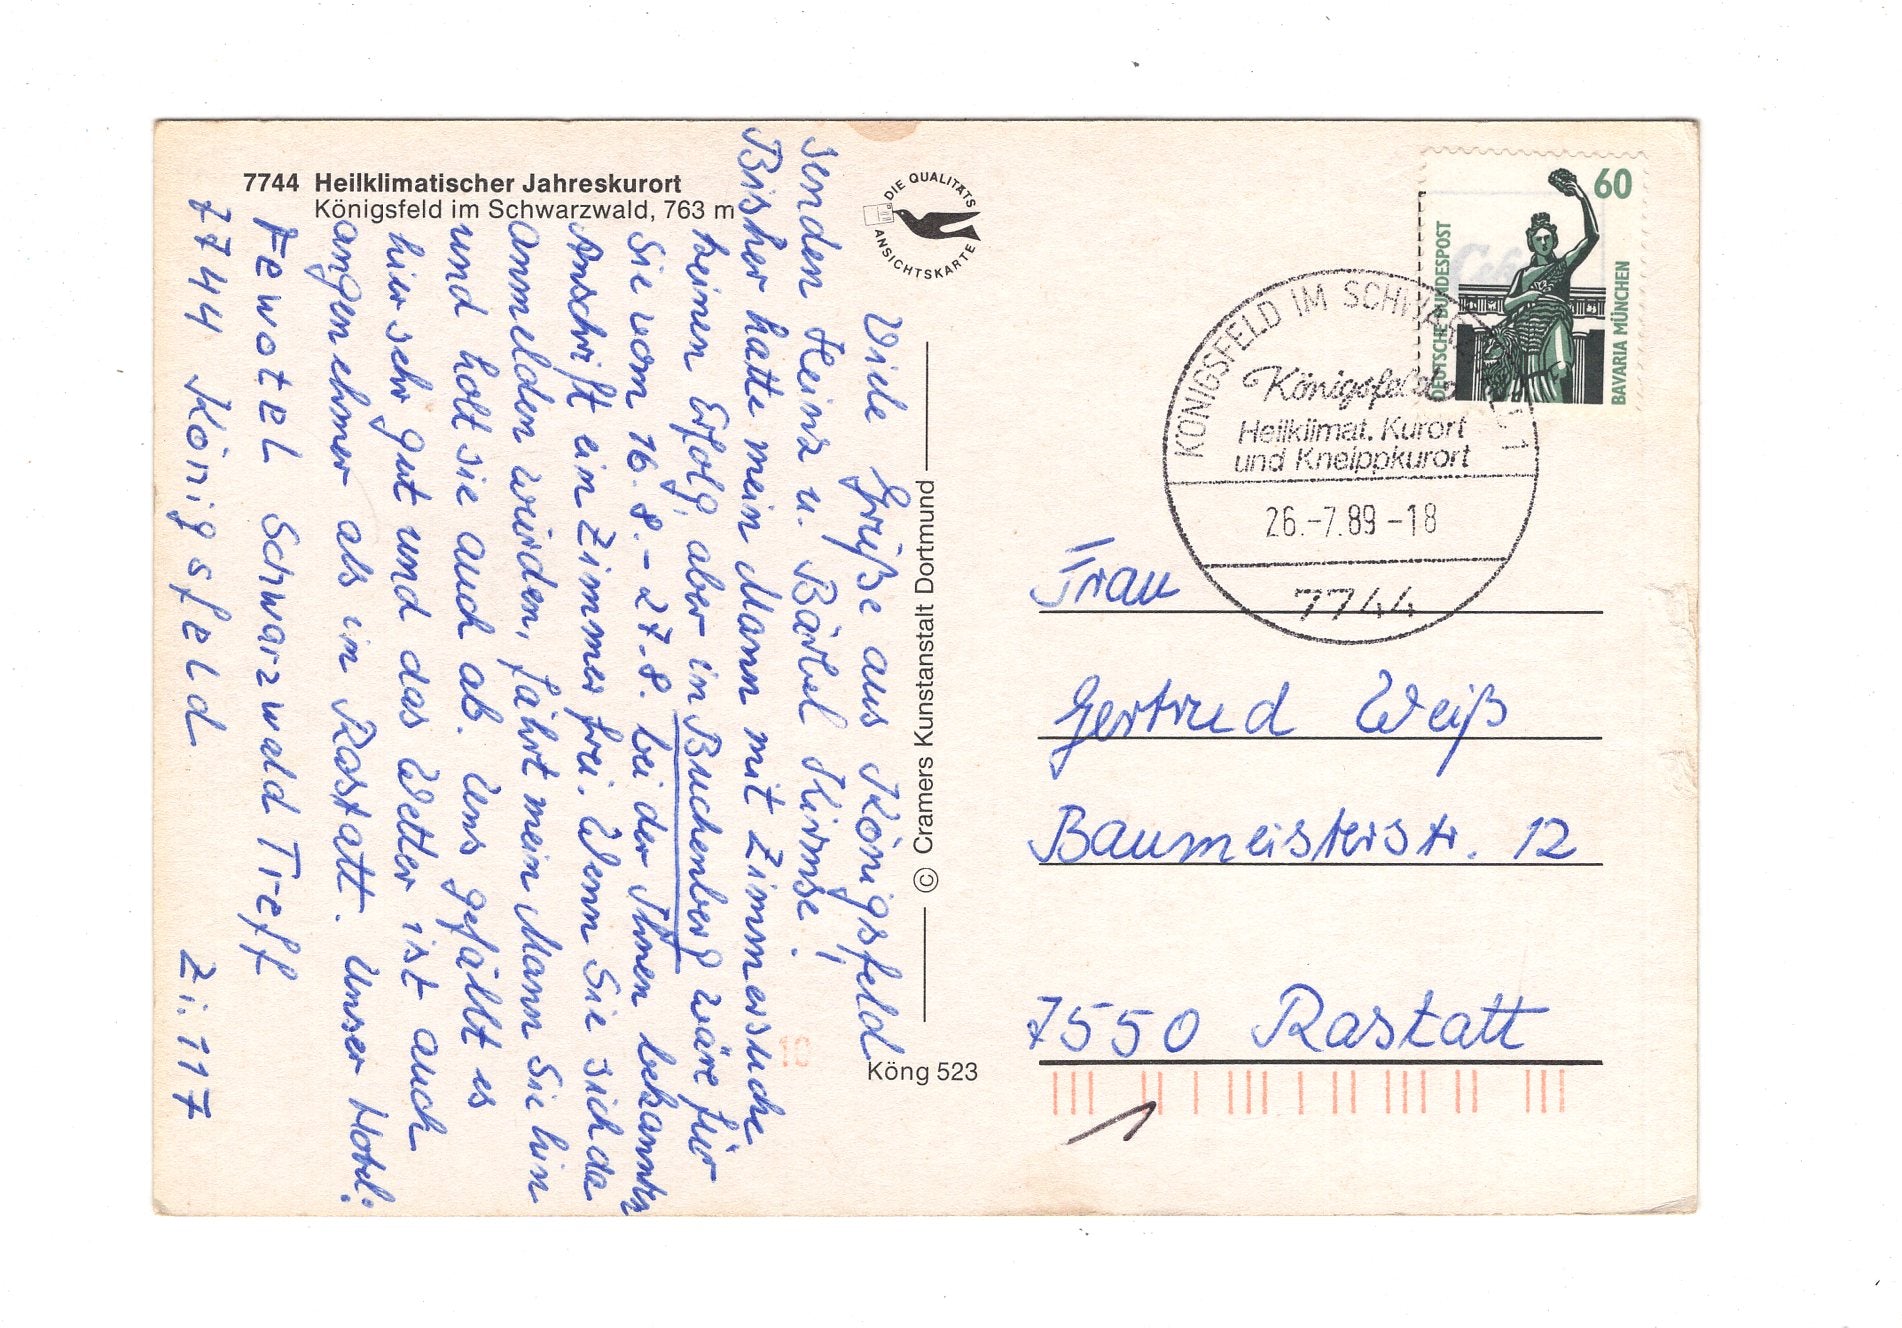 7744 Heilklimatischer Jahreskurort
Königsfeld im Schwarzwald, 763 m
DIE QUALITÄTS
ANSICHTSKARTE
Viele Grüße aus Königsfeld
senden Heinz u. Bärbel Hirmse!
Bisher hatte mein Mann mit Zimmersuche
keinen Erfolg, aber in Buchenberg wäre für
Sie vom 16.8.-27.8. bei der Ihnen bekannten
Anschrift ein Zimmer frei. Wenn Sie sich da
anmelden würden, fährt mein Mann Sie hin
und holt sie auch ab. Uns gefällt es
hier sehr gut und das Wetter ist auch
angenehmer als in Rastatt. Unser Hotel:
Fewotel Schwarzwald Treff
7744 Königsfeld Zi. 117
© Cramers Kunstanstalt Dortmund
Köng 523
60
DEUTSCHE BUNDESPOST
BAVARIA MÜNCHEN
KÖNIGSFELD IM SCHWARZWALD 1
Königsfeld
Heilklimat. Kurort
und Kneippkurort
26.-7.89-18
7744
Frau
Gertrud Weiß
Baumeisterstr. 12
7550 Rastatt